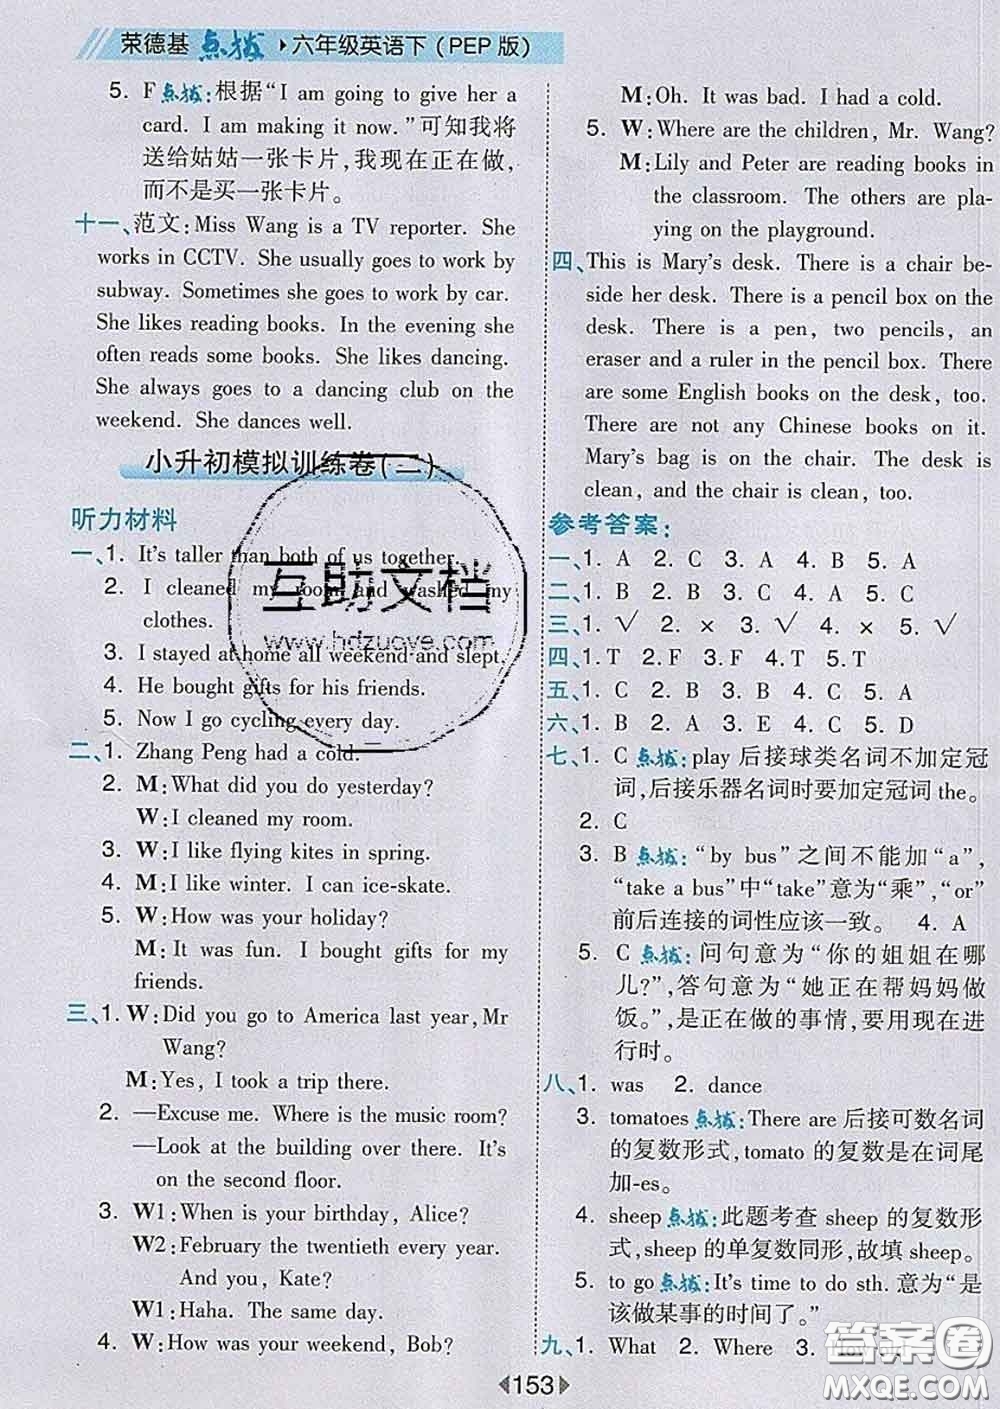 荣德基 点拨 六年级英语下(PEP版)
5. F点拨:根据“I am going to give her a
card. I am making it now.”可知我将
送给姑姑一张卡片,我现在正在做,
而不是买一张卡片。
十一、范文:Miss Wang is a TV reporter. She
works in CCTV. She usually goes to work by
subway. Sometimes she goes to work by car.
She likes reading books. In the evening she
often reads some books. She likes dancing.
She always goes to a dancing club on the
weekend. She dances well.
小升初模拟训练卷(二)
听力材料
一、1. It's taller than both of us together.
2. I cleaned my room and washed my
clothes.
3. I stayed at home all weekend and slept.
4. He bought gifts for his friends.
5. Now I go cycling every day.
二、1. Zhang Peng had a cold.
2. M:What did you do yesterday?
W:I cleaned my room.
3. W:I like flying kites in spring.
4. M:I like winter. I can ice-skate.
5. W:How was your holiday?
M:It was fun. I bought gifts for my
friends.
三、1. W:Did you go to America last year, Mr
Wang?
M:Yes, I took a trip there.
2. —Excuse me. Where is the music room?
—Look at the building over there. It's
on the second floor.
3. W1:When is your birthday, Alice?
W2:February the twentieth every year.
And you, Kate?
W1:Haha. The same day.
4. W:How was your weekend, Bob?
M:Oh. It was bad. I had a cold.
5. W:Where are the children, Mr. Wang?
M:Lily and Peter are reading books in
the classroom. The others are pla-
ying on the playground.
四、This is Mary's desk. There is a chair be-
side her desk. There is a pencil box on the
desk. There is a pen, two pencils, an
eraser and a ruler in the pencil box. There
are some English books on the desk, too.
There are not any Chinese books on it.
Mary's bag is on the chair. The desk is
clean, and the chair is clean, too.
参考答案:
一、1. A 2. C 3. A 4. B 5. A
二、1. B 2. B 3. C 4. A 5. C
三、1. √ 2. × 3. √ 4. × 5. √
四、1. T 2. F 3. F 4. T 5. T
五、1. C 2. B 3. B 4. C 5. A
六、1. B 2. A 3. E 4. C 5. D
七、1. C 点拨:play 后接球类名词不加定冠
词,后接乐器名词时要加定冠词 the。
2. C
3. B 点拨:“by bus”之间不能加“a”,
“take a bus”中“take”意为“乘”,“or”
前后连接的词性应该一致。 4. A
5. C 点拨:问句意为“你的姐姐在哪
儿?”,答句意为“她正在帮妈妈做
饭。”,是正在做的事情,要用现在进
行时。
八、1. was 2. dance
3. tomatoes点拨:There are 后接可数名词
的复数形式,tomato 的复数是在词尾
加-es。
4. sheep点拨:此题考查 sheep 的复数形
式,sheep 的单复数同形,故填 sheep。
5. to go点拨:It's time to do sth. 意为“是
该做某事的时间了。”
九、1. What 2. Where 3.
153
互助文档
www.hdzuoye.com
答案圈
MXQE.COM